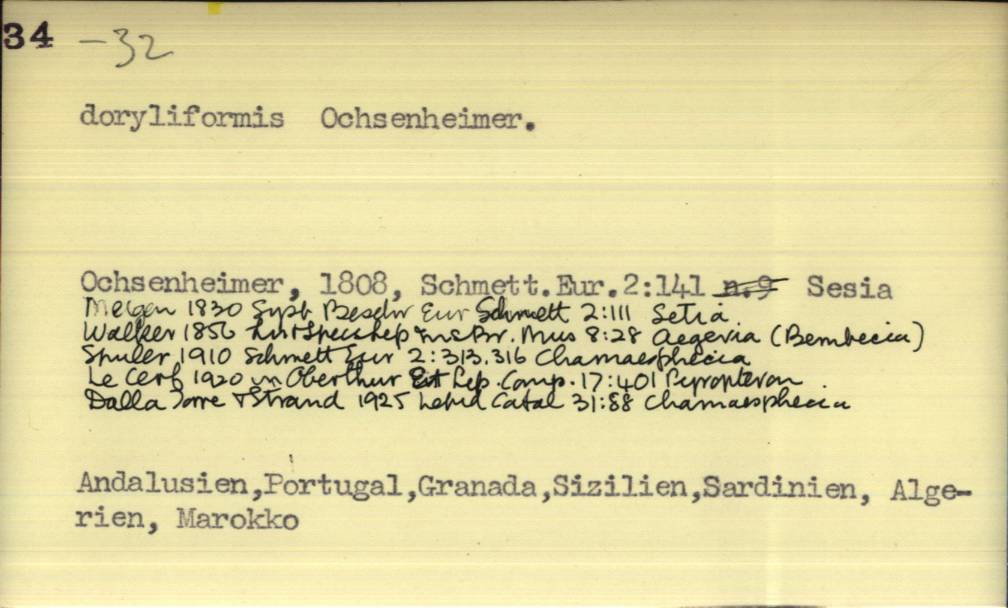 34 -32
doryliformis Ochsenheimer.
Ochsenheimer, 1808, Schmett.Eur.2:141 n.9 Sesia
Meigen 1830 Syst Beschr Eur Schmett 2:111 Setia
Walker 1856 List Spec Lep Ins Br. Mus 8:28 Aegeria (Bembecia)
Spuler 1910 Schmett Eur 2:313.316 Chamaesphecia
Le Cerf 1920 in Oberthur Et Lep. Comp. 17:401 Pyropteron
Dalla Torre & Strand 1925 Lepid Catal 31:88 Chamaesphecia
Andalusien,Portugal,Granada,Sizilien,Sardinien, Alge-
rien, Marokko